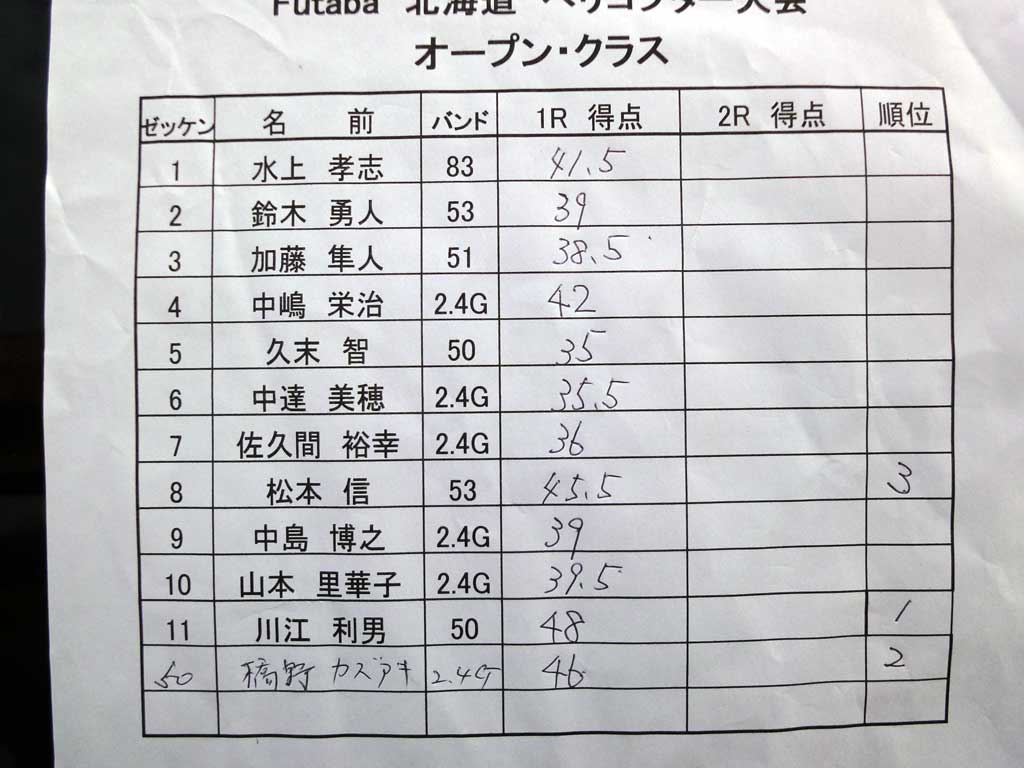 Futaba 北海道 ヘリコプター大会
オープン・クラス
ゼッケン 名 前 バンド 1R 得点 2R 得点 順位
1 水上 孝志 83 41.5
2 鈴木 勇人 53 39
3 加藤 隼人 51 38.5
4 中嶋 栄治 2.4G 42
5 久末 智 50 35
6 中達 美穂 2.4G 35.5
7 佐久間 裕幸 2.4G 36
8 松本 信 53 45.5 3
9 中島 博之 2.4G 39
10 山本 里華子 2.4G 39.5
11 川江 利男 50 48 1
50 橋野 カズアキ 2.4G 46 2